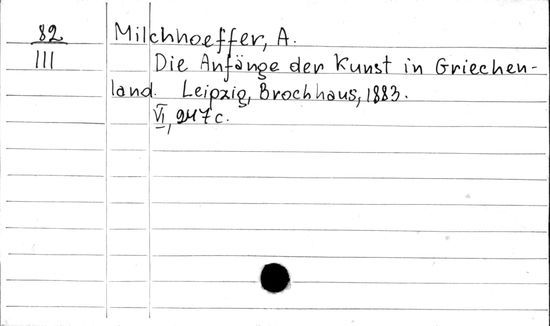 82 Milchhoeffer, A.
III Die Anfänge der Kunst in Griechen-
land. Leipzig, Brochhaus, 1883.
VI, 247 c.